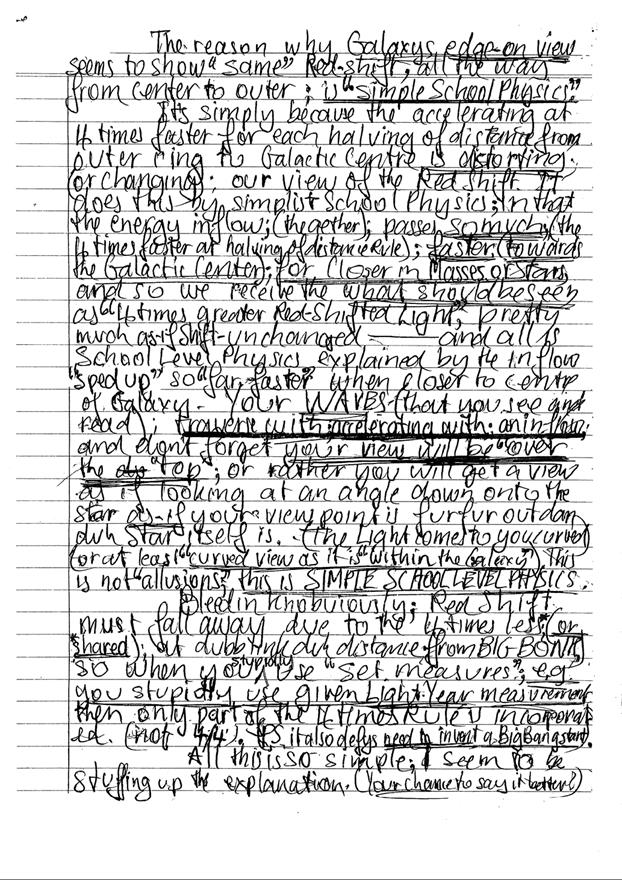 The reason why Galaxys edge-on view
seems to show "same" Red-shift, all the way
from center to outer; is "simple School Physics".
It's simply because the accelerating at
4 times faster for each halving of distance from
outer ring to Galactic Centre is distorting.
(or changing); our view of the Red Shift. It
does this by simplist School Physics; in that
the energy inflow; (the gether); passes so much (the
4 times faster at halving of distance Rule); faster; (towards
the Galactic Center); for Closer in Masses or Stars,
and so we receive the what should be seen
as "4 times greater Red-Shifted Light", pretty
much as-if shift-unchanged — and all is
School Level Physics explained by the inflow
"sped up" so "far faster" when closer to centre
of Galaxy. Your WAVES (that you see and
read); traverse with; accelerating with; an inflow,
and dont forget your view will be "over
the top"; or rather you will get a view
as if looking at an angle down onto the
star as-if your viewpoint is furfur out dan
duh Star itself is. (The Light comes to you curved)
(or at least "curved view as it is "within the Galaxy") This
is not "allusions", this is SIMPLE SCHOOL LEVEL PHYSICS.
Bleedin knobviously; Red Shift
must fall away due to the "4 times less (or
shared); at dubbling duh distance from BIG BONK,
so when you stupidly use "set measures"; eg
you stupidly use given Light-Year measurement
then only part of the 4 times Rule is incorporat
ed. (not 4/4). PS, it also defys need to invent a Big Bang start.
All this is so simple; I seem to be
stuffing up the explanation. (Your chance to say it better!)